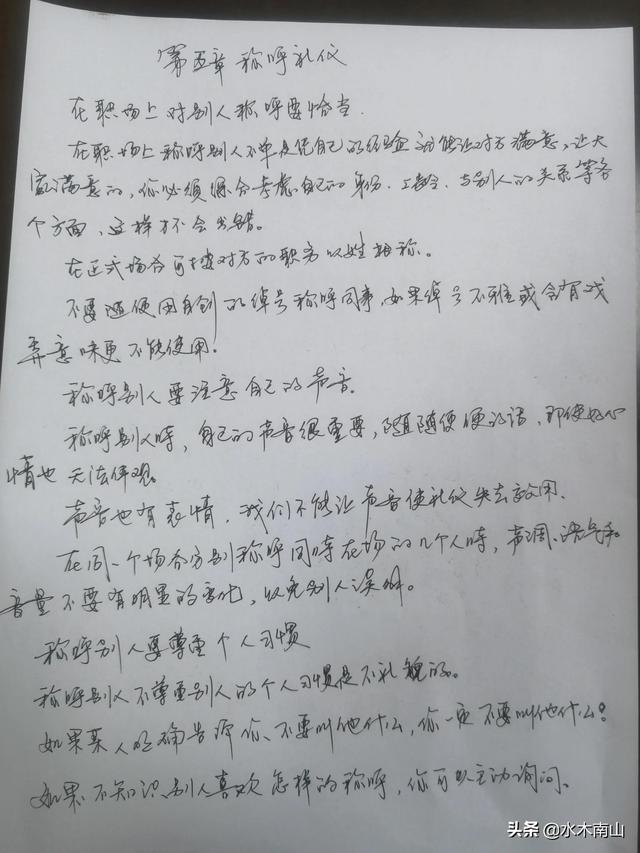 第五章 称呼礼仪
在职场上对别人称呼要恰当.
在职场上称呼别人不单是凭自己的经验就能让对方满意,让大
家满意的,你必须综合考虑自己的身份、场合、与别人的关系等各
个方面,这样才不会出错。
在正式场合可按对方的职务以姓相称。
不要随便用自创的绰号称呼同事,如果绰号不雅或含有戏
弄意味更不能使用.
称呼别人要注意自己的声音.
称呼别人时,自己的声音很重要,随随便便的话,即使好心
情也无法体现。
声音也有表情,我们不能让声音使礼仪失去效用.
在同一个场合分别称呼同时在场的几个人时,声调、语气和
音量不要有明显的变化,以免别人误解。
称呼别人要尊重个人习惯
称呼别人不尊重别人的个人习惯是不礼貌的。
如果某人明确告诉你、不要叫他什么,你一定不要叫他什么!
如果不知识别人喜欢怎样的称呼,你可以主动询问。
头条 @水木南山